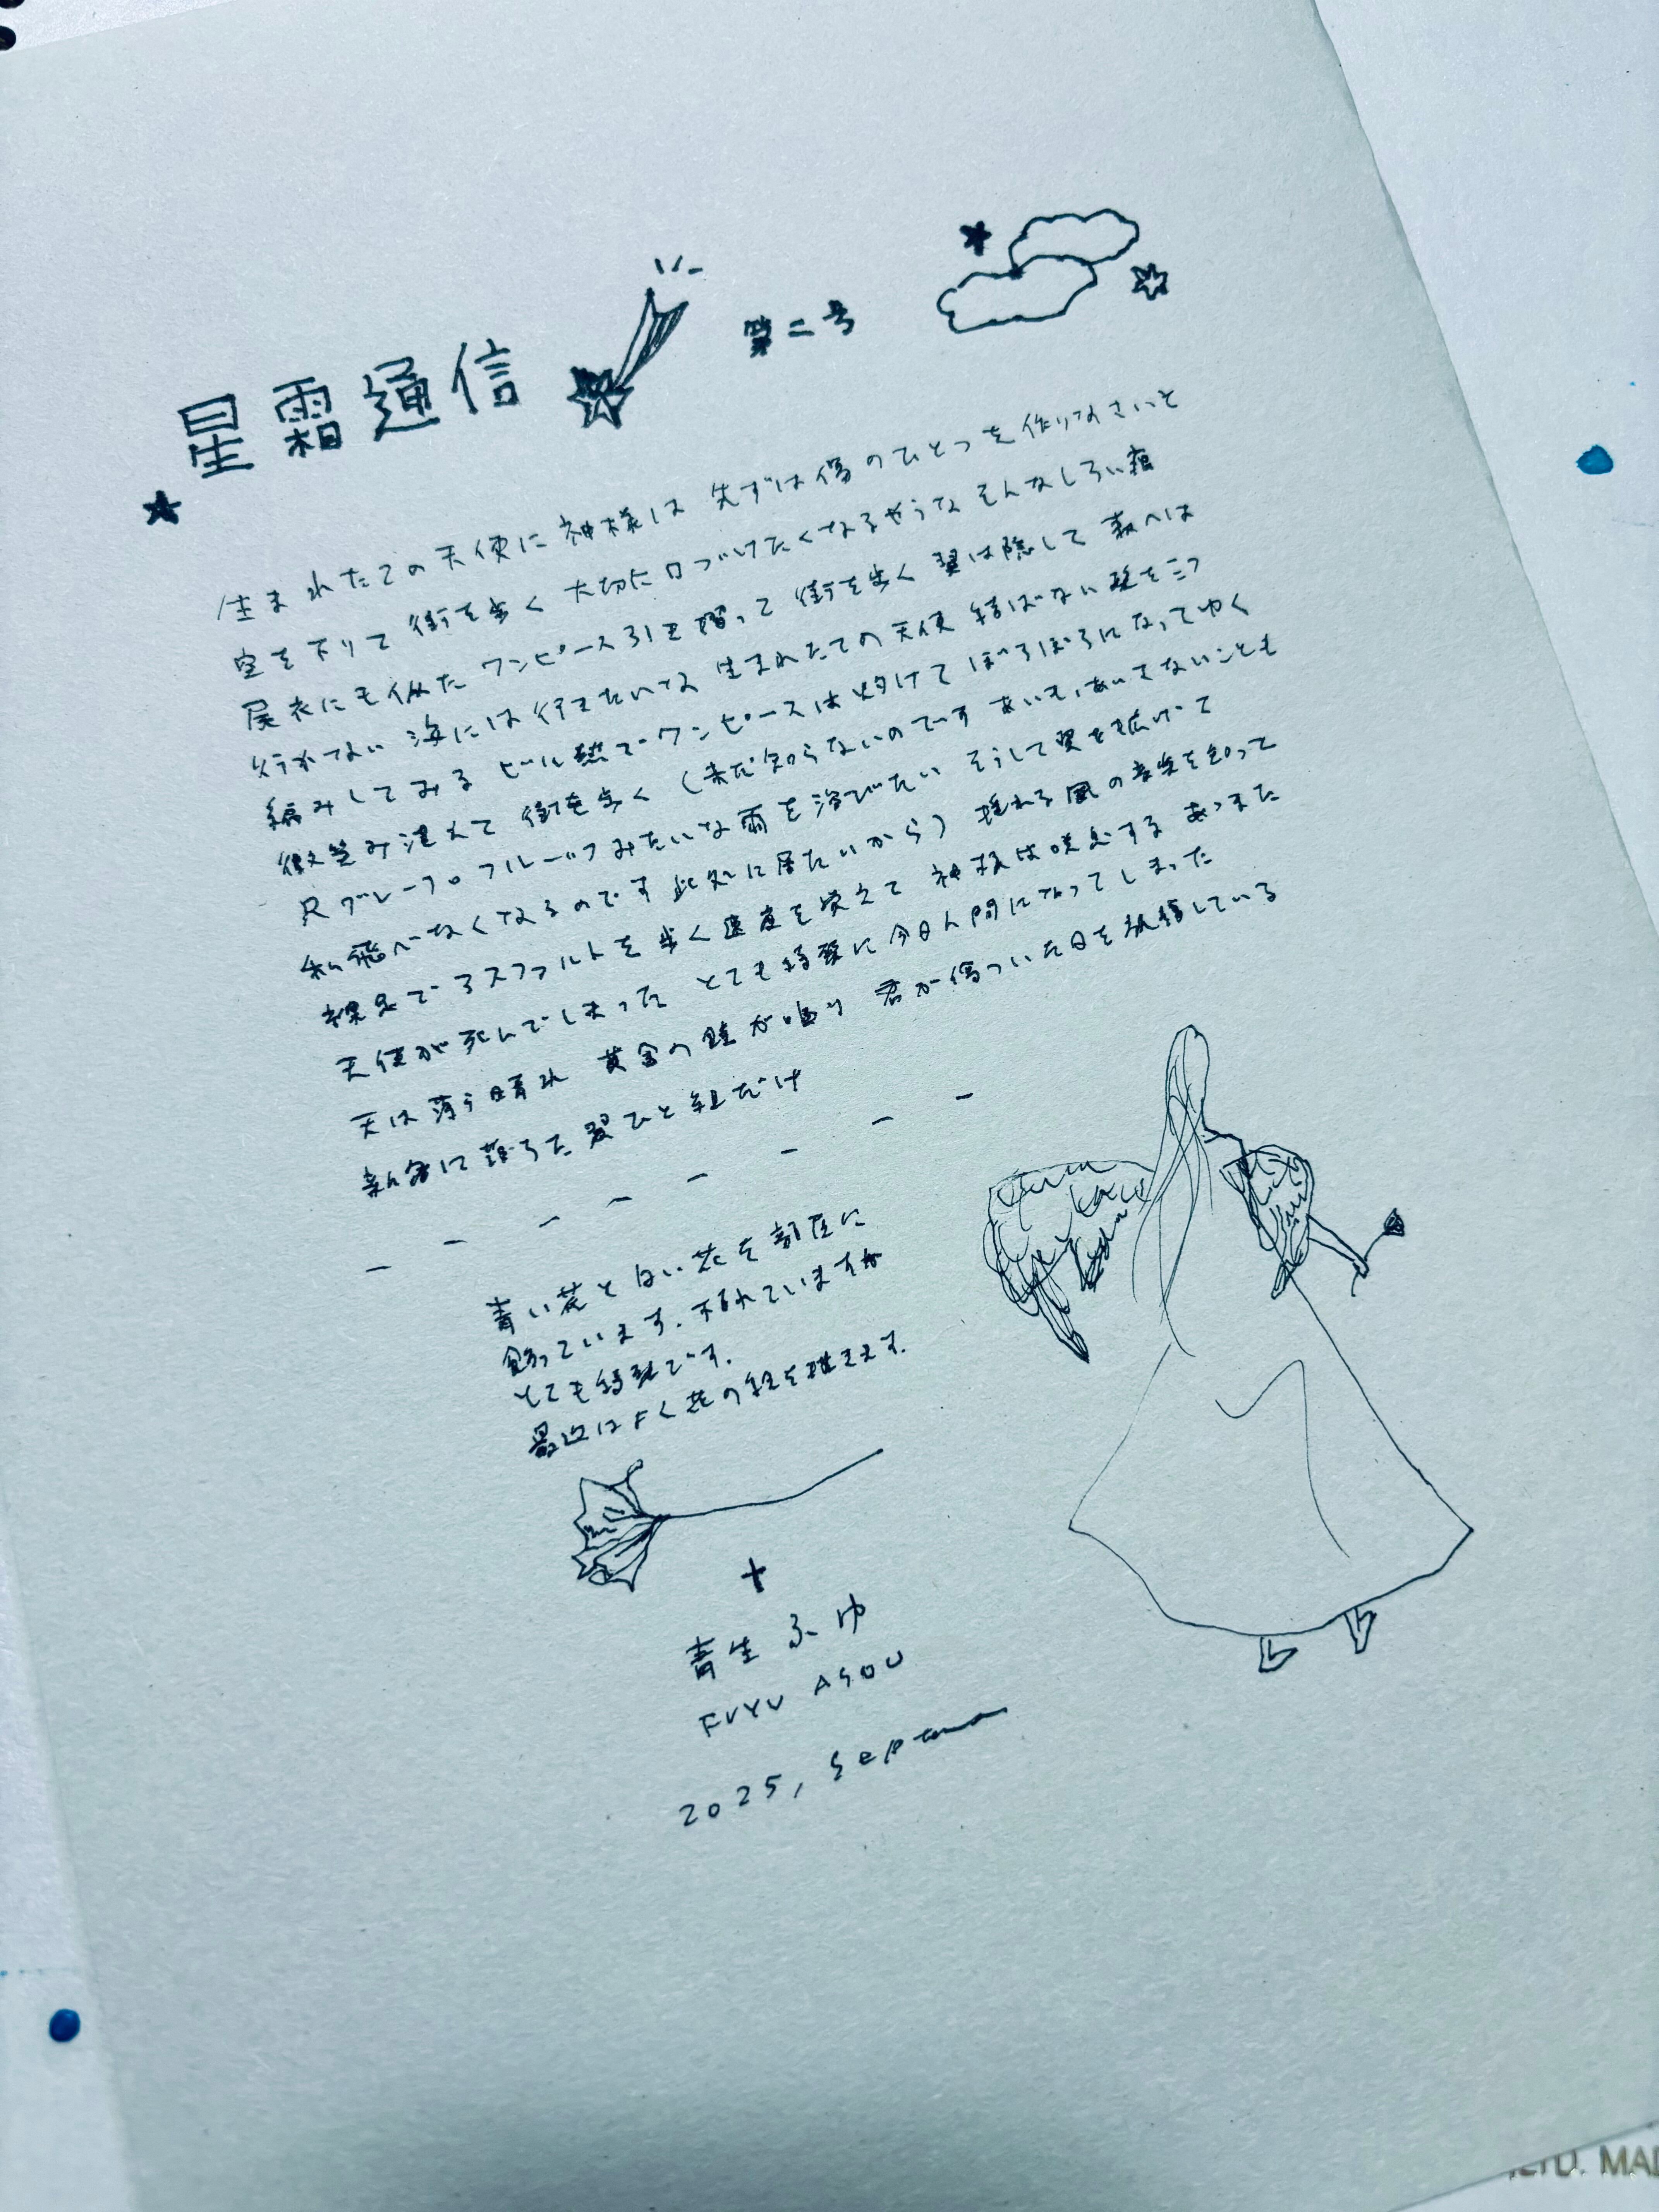 星霜通信 第二号
生まれたての天使に神様は 先ずは傷のひとつを作りなさいと
空を下りて 街を歩く 大切に口づけたくなるやうな そんなしろい
尾衣にも似た ワンピース引き摺って 街を歩く 翼は隠して 森へは
行かない 海には行きたいな 生まれたての天使 結ばない髪を三つ
編みしてみる ビル熱でワンピースは灼けて ぼろぼろになってゆく
微笑み湛えて 街を歩く (未だ知らないのです あいも、あいさないことも
只グレープフルーツみたいな雨を浴びたい そうして翼を拡げて
私飛べなくなるのです 此処に居たいから) 揺れる風の音楽を知って
裸足でアスファルトを歩く速度を覚えて 神様は する あっまた
天使が死んでしまった とても綺麗に今日人間になってしまった
天は薄ら晴れ 黄金の鐘が鳴り 君が傷ついた日を祝福している
に 翼ひと組だけ
青い花と白い花を部屋に
飾っています. 枯れていますが
とても綺麗です.
最近はよく花の絵を描きます.
青生ふゆ
FUYU ASOU
2025, Septem
LTD. MAD